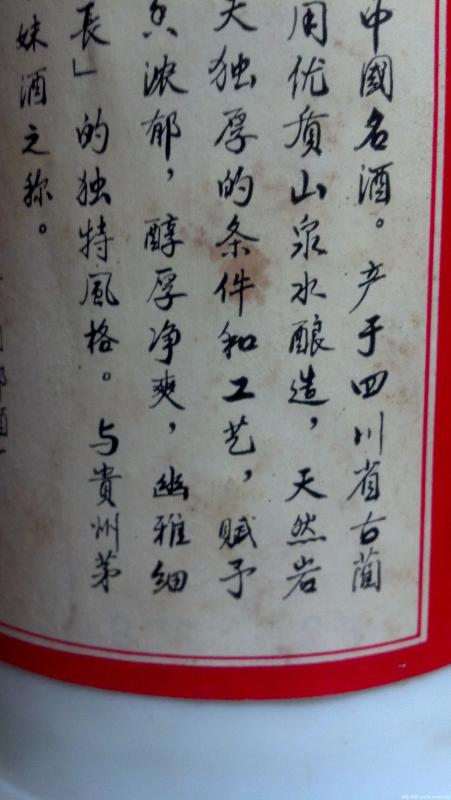 中國名酒。产于四川省古蔺
用优质山泉水酿造，天然岩
天独厚的条件和工艺，赋予
浓郁，醇厚净爽，幽雅细
長」的独特風格。与貴州茅
妹酒之称。